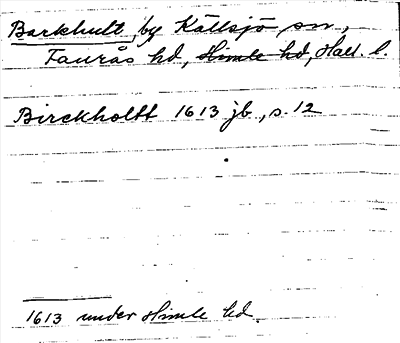 Barkhult, by Källsjö sn,
Faurås hd, Himle hd, Hall. l.
Birckholtt 1613 jb, s. 12
1613 under Himle hd